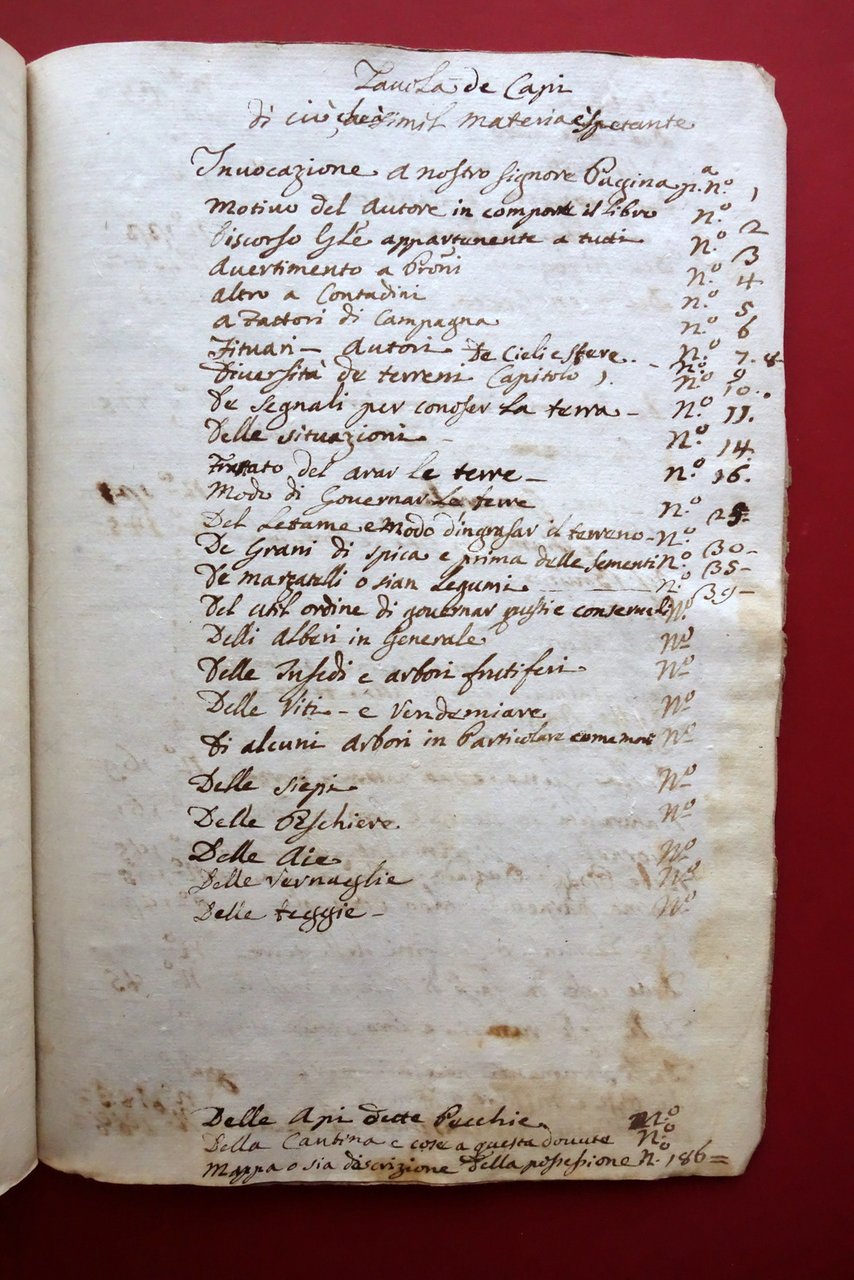 Tavola de Capi
di ciò che à simil materia è spetante
Invocazione a nostro signore Pagina p.ª n.º 1
Motivo del Autore in compore il Libro n.º 2
Discorso Gle appartenente a tutti n.º 3
Avertimento a Proni n.º 4
altro a Contadini n.º 5
a Fattori di Campagna n.º 6
Fituari - Autori De Cieli e sfere.. - n.º 7. 8
Diversità de terreni Capitolo 1. n.º 9
n.º 10.
De segnali per conoser la terra - n.º 11.
Delle situazioni - n.º 14.
Trattato del arar le terre - n.º 16.
Modo di Governar le terre n.º 25-
Del Letame e Modo d'ingrasar il terreno - n.º 30-
De Grani di spica e prima delle sementi n.º 35-
De marzatelli o sian Legumi n.º 39-
Del util ordine di governar questi e conservali n.º
Delli Alberi in Generale nº
Delle Insedi e arbori frutiferi nº
Delle Viti - e Vendemiare nº
Di alcuni Arbori in Particolare come mori nº
Delle siepi nº
Delle Peschiere nº
Delle Aie nº
Delle Vernaglie nº
Delle teggie - nº
Delle Api dette Pecchie n.º
Della Cantina e cose a questa dovute n.º
Mappa o sia discrizione della possessione n.º 186=